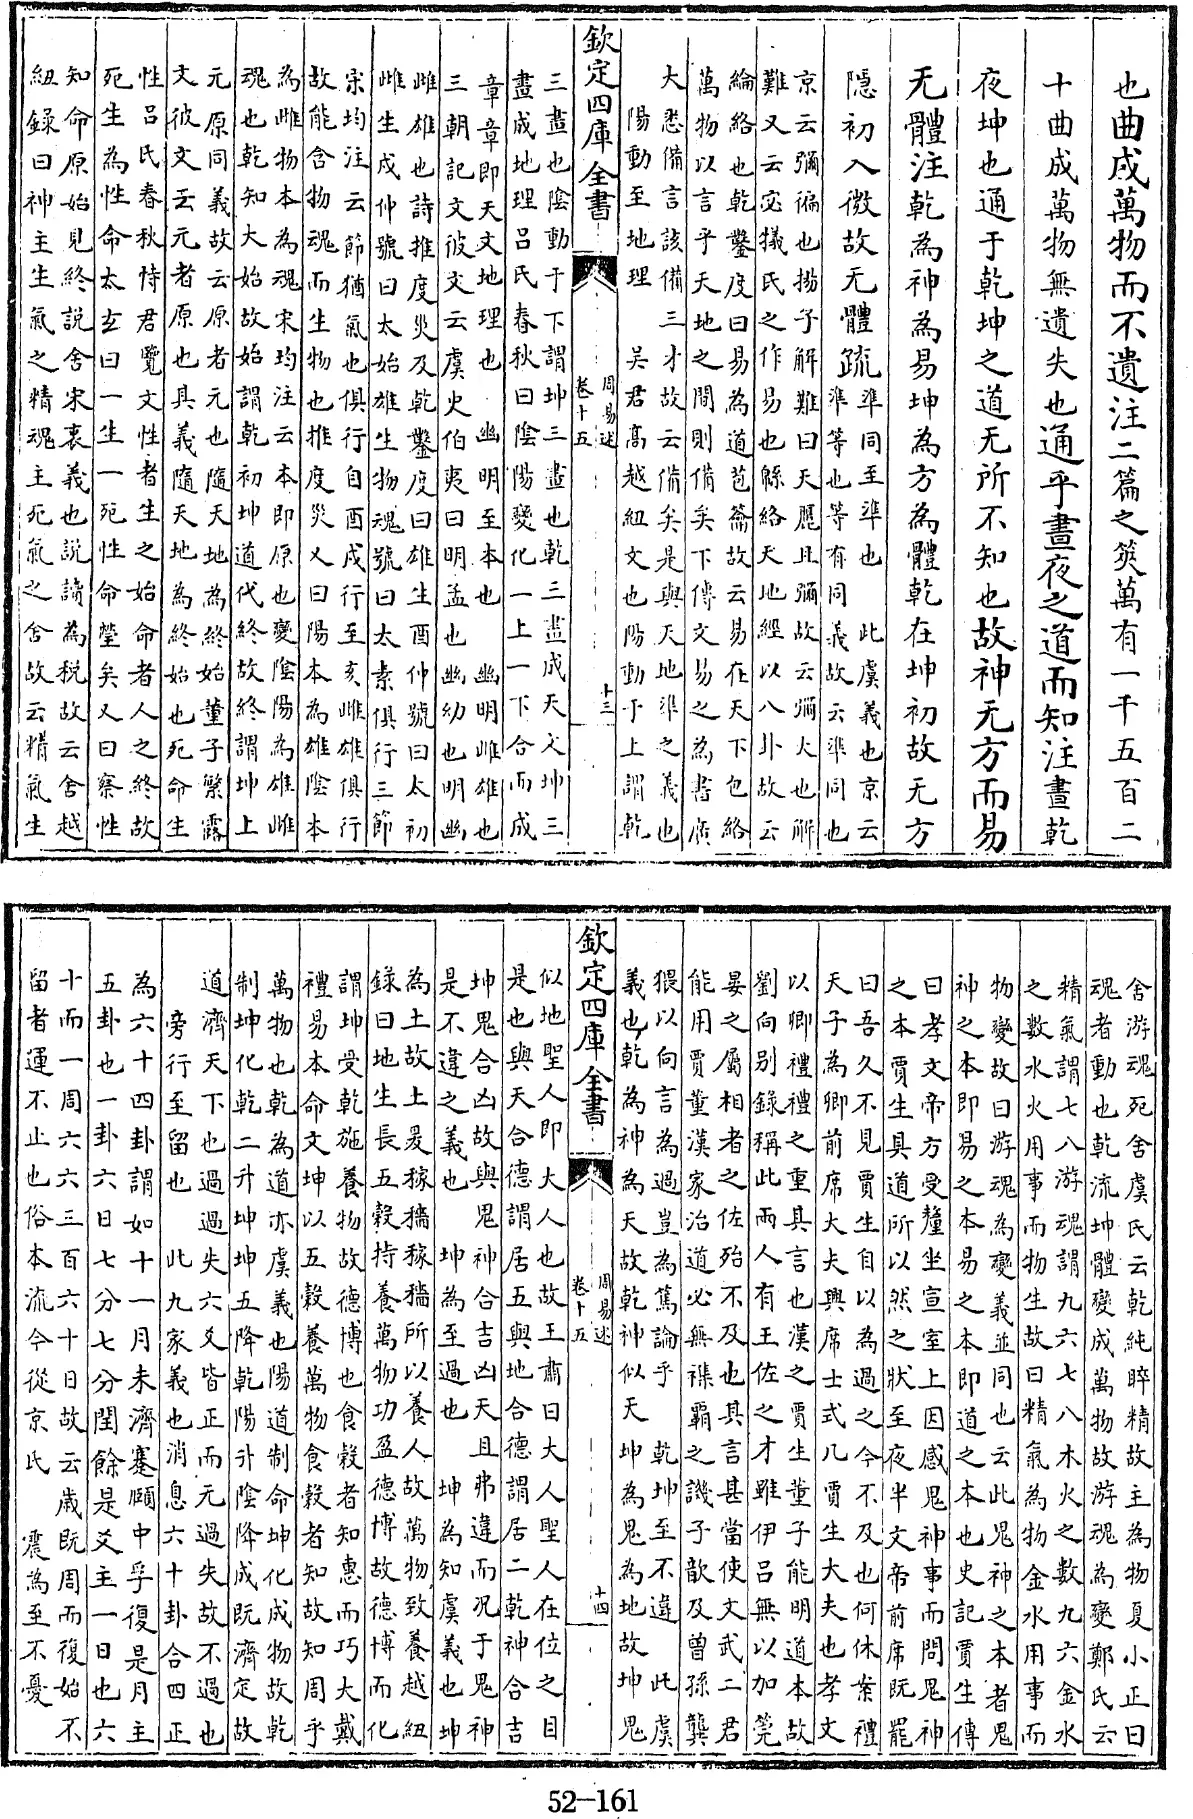 也曲成萬物而不遺注二篇之筴萬有一千五百二
十曲成萬物無遺失也通乎晝夜之道而知注晝乾
夜坤也通于乾坤之道无所不知也故神无方而易
无體注乾為神為易坤為方為體乾在坤初故无方
隱初入微故无體疏準同至準也 此虞義也京云
準等也等有同義故云準同也
京云彌徧也揚子解難曰天麗且彌故云彌大也解
難又云宓犧氏之作易也緜絡天地經以八卦故云
綸絡也乾鑿度曰易為道苞籥故云易在天下包絡
萬物以言乎天地之間則備矣下傳文易之為書廣
大悉備言該備三才故云備矣是與天地準之義也
陽動至地理 吳君髙越紐文也陽動于上謂乾
欽定四庫全書 周易述 卷十五 十三
三畫也陰動于下謂坤三畫也乾三畫成天文坤三
畫成地理呂氏春秋曰陰陽變化一上一下合而成
章章即天文地理也 幽明至本也 幽明雌雄也
三朝記文彼文云虞史伯夷曰明孟也幽幼也明幽
雌雄也詩推度災及乾鑿度曰雄生酉仲號曰太初
雌生戌仲號曰太始雄生物魂號曰太素俱行三節
宋均注云節猶氣也俱行自酉戌行至亥雌雄俱行
故能含物魂而生物也推度災又曰陽本為雄陰本
為雌物本為魂宋均注云本即原也變陰陽為雄雌
魂也乾知大始故始謂乾初坤道代終故終謂坤上
元原同義故云原者元也隨天地為終始董子繁露
文彼文云元者原也其義隨天地為終始也死命生
性呂氏春秋恃君覽文性者生之始命者人之終故
死生為性命太玄曰一生一死性命瑩矣又曰察性
知命原始見終説舍宋衷義也説讀為税故云舍越
紐錄曰神主生氣之精魂主死氣之舍故云精氣生
舍游魂死舍虞氏云乾純睟精故主為物夏小正曰
魂者動也乾流坤體變成萬物故游魂為變鄭氏云
精氣謂七八游魂謂九六七八木火之數九六金水
之數水火用事而物生故曰精氣為物金水用事而
物變故曰游魂為變義並同也云此鬼神之本者鬼
神之本即易之本易之本即道之本也史記賈生傳
曰孝文帝方受釐坐宣室上因感鬼神事而問鬼神
之本賈生具道所以然之狀至夜半文帝前席既罷
曰吾久不見賈生自以為過之今不及也何休案禮
天子為卿前席大夫興席士式几賈生大夫也孝文
以卿禮禮之重其言也漢之賈生董子能明道本故
劉向别錄稱此兩人有王佐之才雖伊呂無以加筦
晏之屬相者之佐殆不及也其言甚當使文武二君
能用賈董漢家治道必無襍霸之譏子歆及曾孫龔
猥以向言為過豈為篤論乎 乾坤至不違 此虞
義也乾為神為天故乾神似天 坤為鬼為地故坤鬼
欽定四庫全書 周易述 卷十五 十四
似地聖人即大人也故王肅曰大人聖人在位之目
是也與天合德謂居五與地合德謂居二乾神合吉
坤鬼合凶故與鬼神合吉凶天且弗違而况于鬼神
是不違之義也 坤為至過也 坤為知虞義也坤
為土故土爰稼穡稼穡所以養人故萬物致養越紐
錄曰地生長五穀持養萬物功盈德博故德博而化
謂坤受乾施養物故德博也食穀者知惠而巧大戴
禮易本命文坤以五穀養萬物食穀者知故知周乎
萬物也乾為道亦虞義也陽道制命坤化成物故乾
制坤化乾二升坤坤五降乾陽升陰降成既濟定故
道濟天下也過過失六爻皆正而元過失故不過也
旁行至留也 此九家義也消息六十卦合四正
為六十四卦謂如十一月未濟蹇頤中孚復是月主
五卦也一卦六日七分七分閏餘是爻主一日也六
十而一周六六三百六十日故云歲既周而復始不
留者運不止也俗本流今從京氏 震為至不憂
52-161